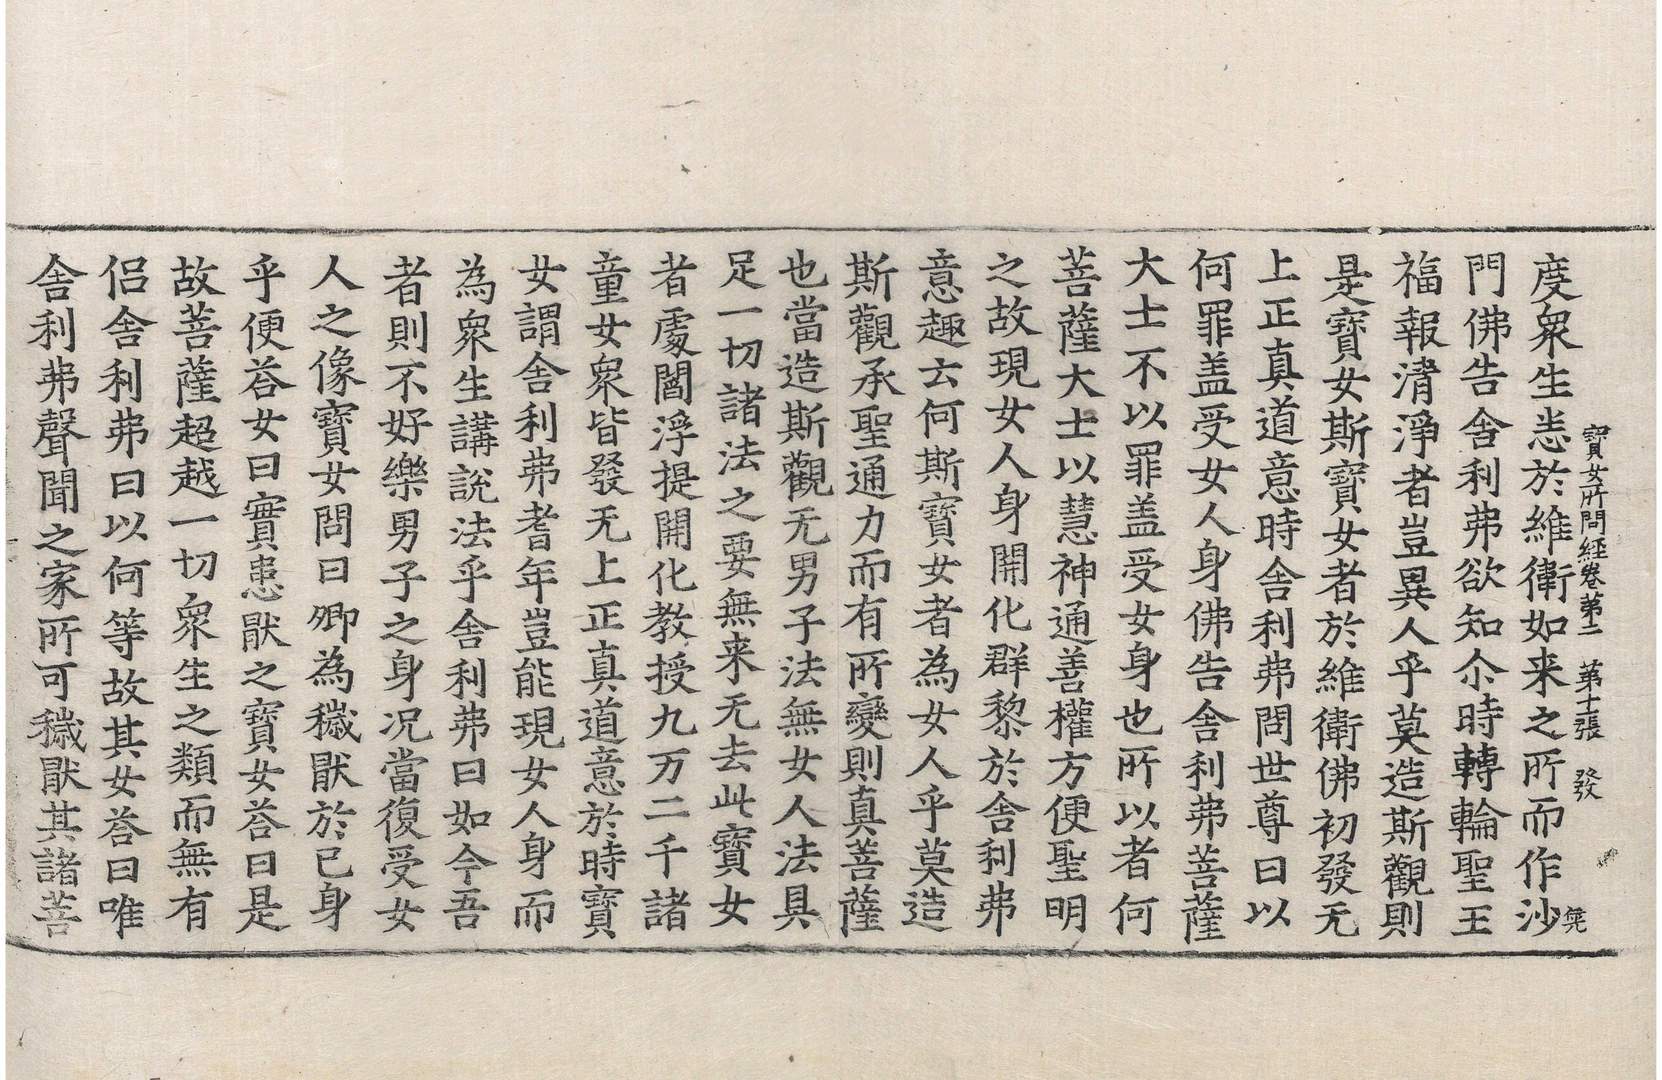 寶女所問經卷第二　第十張　發
度衆生恙於維衛如来之所而作沙
門佛告舍利弗欲知尒時轉輪聖王
福報清淨者豈異人乎莫造斯觀則
是寶女斯寶女者於維衛佛初發无
上正真道意時舍利弗問世尊曰以
何罪盖受女人身佛告舍利弗菩薩
大士不以罪盖受女身也所以者何
菩薩大士以慧神通善權方便聖明
之故現女人身開化群黎於舍利弗
意趣云何斯寶女者為女人乎莫造
斯觀承聖通力而有所變則真菩薩
也當造斯觀无男子法無女人法具
足一切諸法之要無来无去此寶女
者處閻浮提開化教授九万二千諸
童女衆皆發无上正真道意於時寶
女謂舍利弗耆年豈能現女人身而
為衆生講說法乎舍利弗曰如今吾
者則不好樂男子之身况當復受女
人之像寶女問曰卿為穢猒於已身
乎便荅女曰實患猒之寶女荅曰是
故菩薩超越一切衆生之類而無有
侣舍利弗曰以何等故其女荅曰唯
舍利弗聲聞之家所可穢猒其諸菩